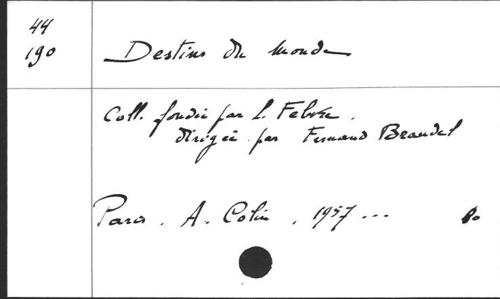 44
190
Destins du monde
Coll. fondée par L. Febvre.
dirigée par Fernand Braudel
Paris. A. Colin, 1957...
8o